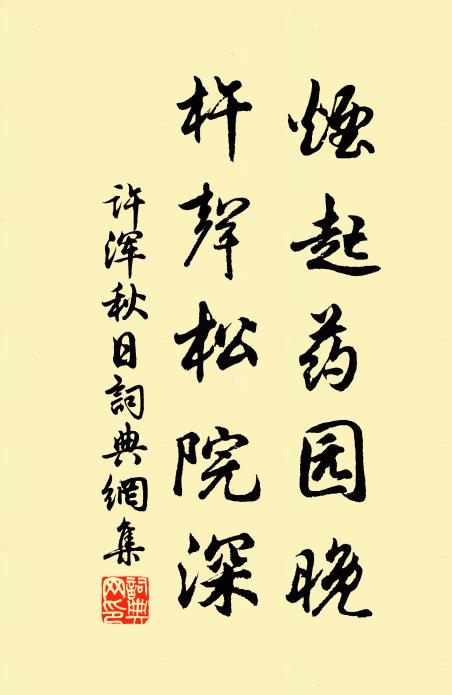 煙起药园晚
杵聲松院深
许浑秋日詞典網集
詞典网印